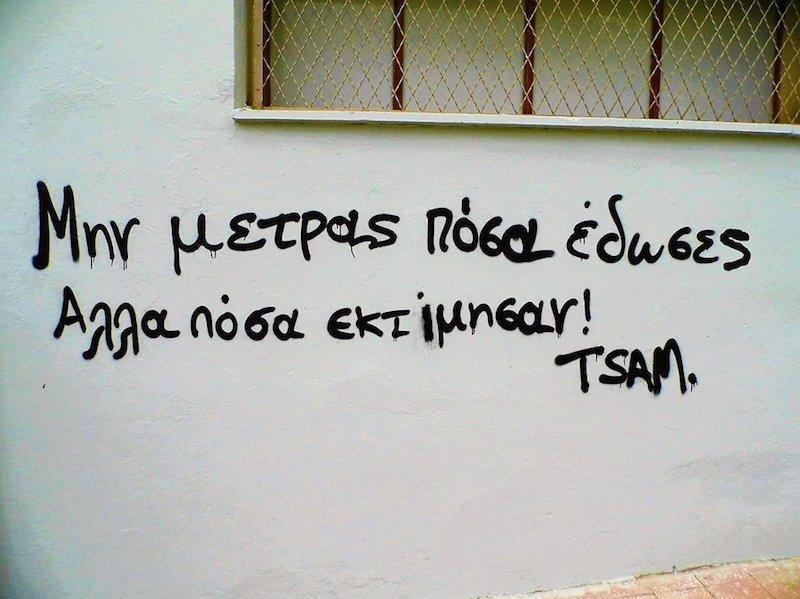 Μην μετρας πόσα έδωσες
Αλλα πόσα εκτίμησαν!
TSAM.